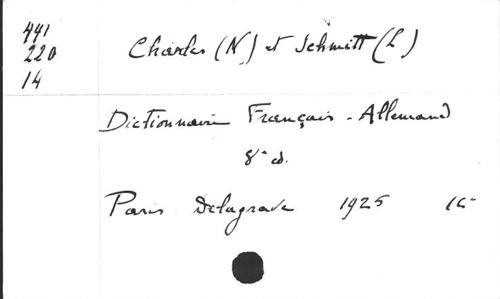 441
220
14
Charles (N) et Schmitt (L)
Dictionnaire Français - Allemand
8e ed.
Paris Delagrave 1925 16°